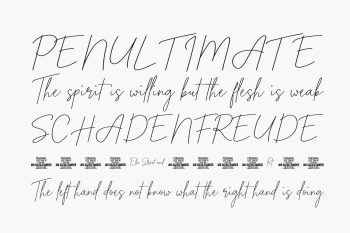 PENULTIMATE
The spirit is willing but the flesh is weak
SCHADENFREUDE
The left hand does not know what the right hand is doing